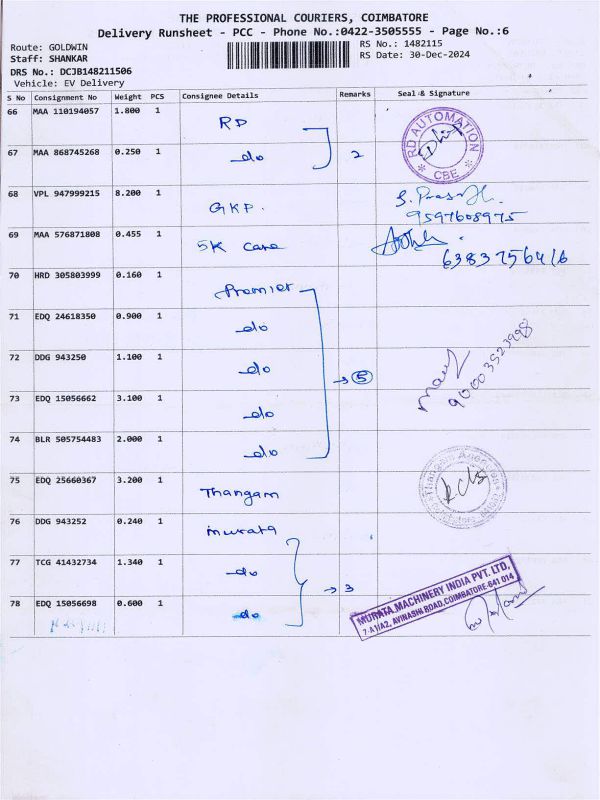 THE PROFESSIONAL COURIERS, COIMBATORE
Delivery Runsheet - PCC - Phone No.:0422-3505555 - Page No.:6
Route: GOLDWIN
Staff: SHANKAR
DRS No.: DCJB148211506
Vehicle: EV Delivery
RS No.: 1482115
RS Date: 30-Dec-2024
S No Consignment No Weight PCS Consignee Details Remarks Seal & Signature
66 MAA 110194057 1.800 1 RD
RD AUTOMATION
* CBE *
67 MAA 868745268 0.250 1 do 2
68 VPL 947999215 8.200 1 GKP.
9597608975
69 MAA 576871808 0.455 1 5K Care
6383756416
70 HRD 305803999 0.160 1 Premier
71 EDQ 24618350 0.900 1 do
72 DDG 943250 1.100 1 do → 5
73 EDQ 15056662 3.100 1 do
74 BLR 505754483 2.000 1 do
75 EDQ 25660367 3.200 1 Thangam
76 DDG 943252 0.240 1 murata
77 TCG 41432734 1.340 1 do → 3
78 EDQ 15056698 0.600 1 do
MURATA MACHINERY INDIA PVT. LTD,
7-A1/A2, AVINASHI ROAD, COIMBATORE-641 014